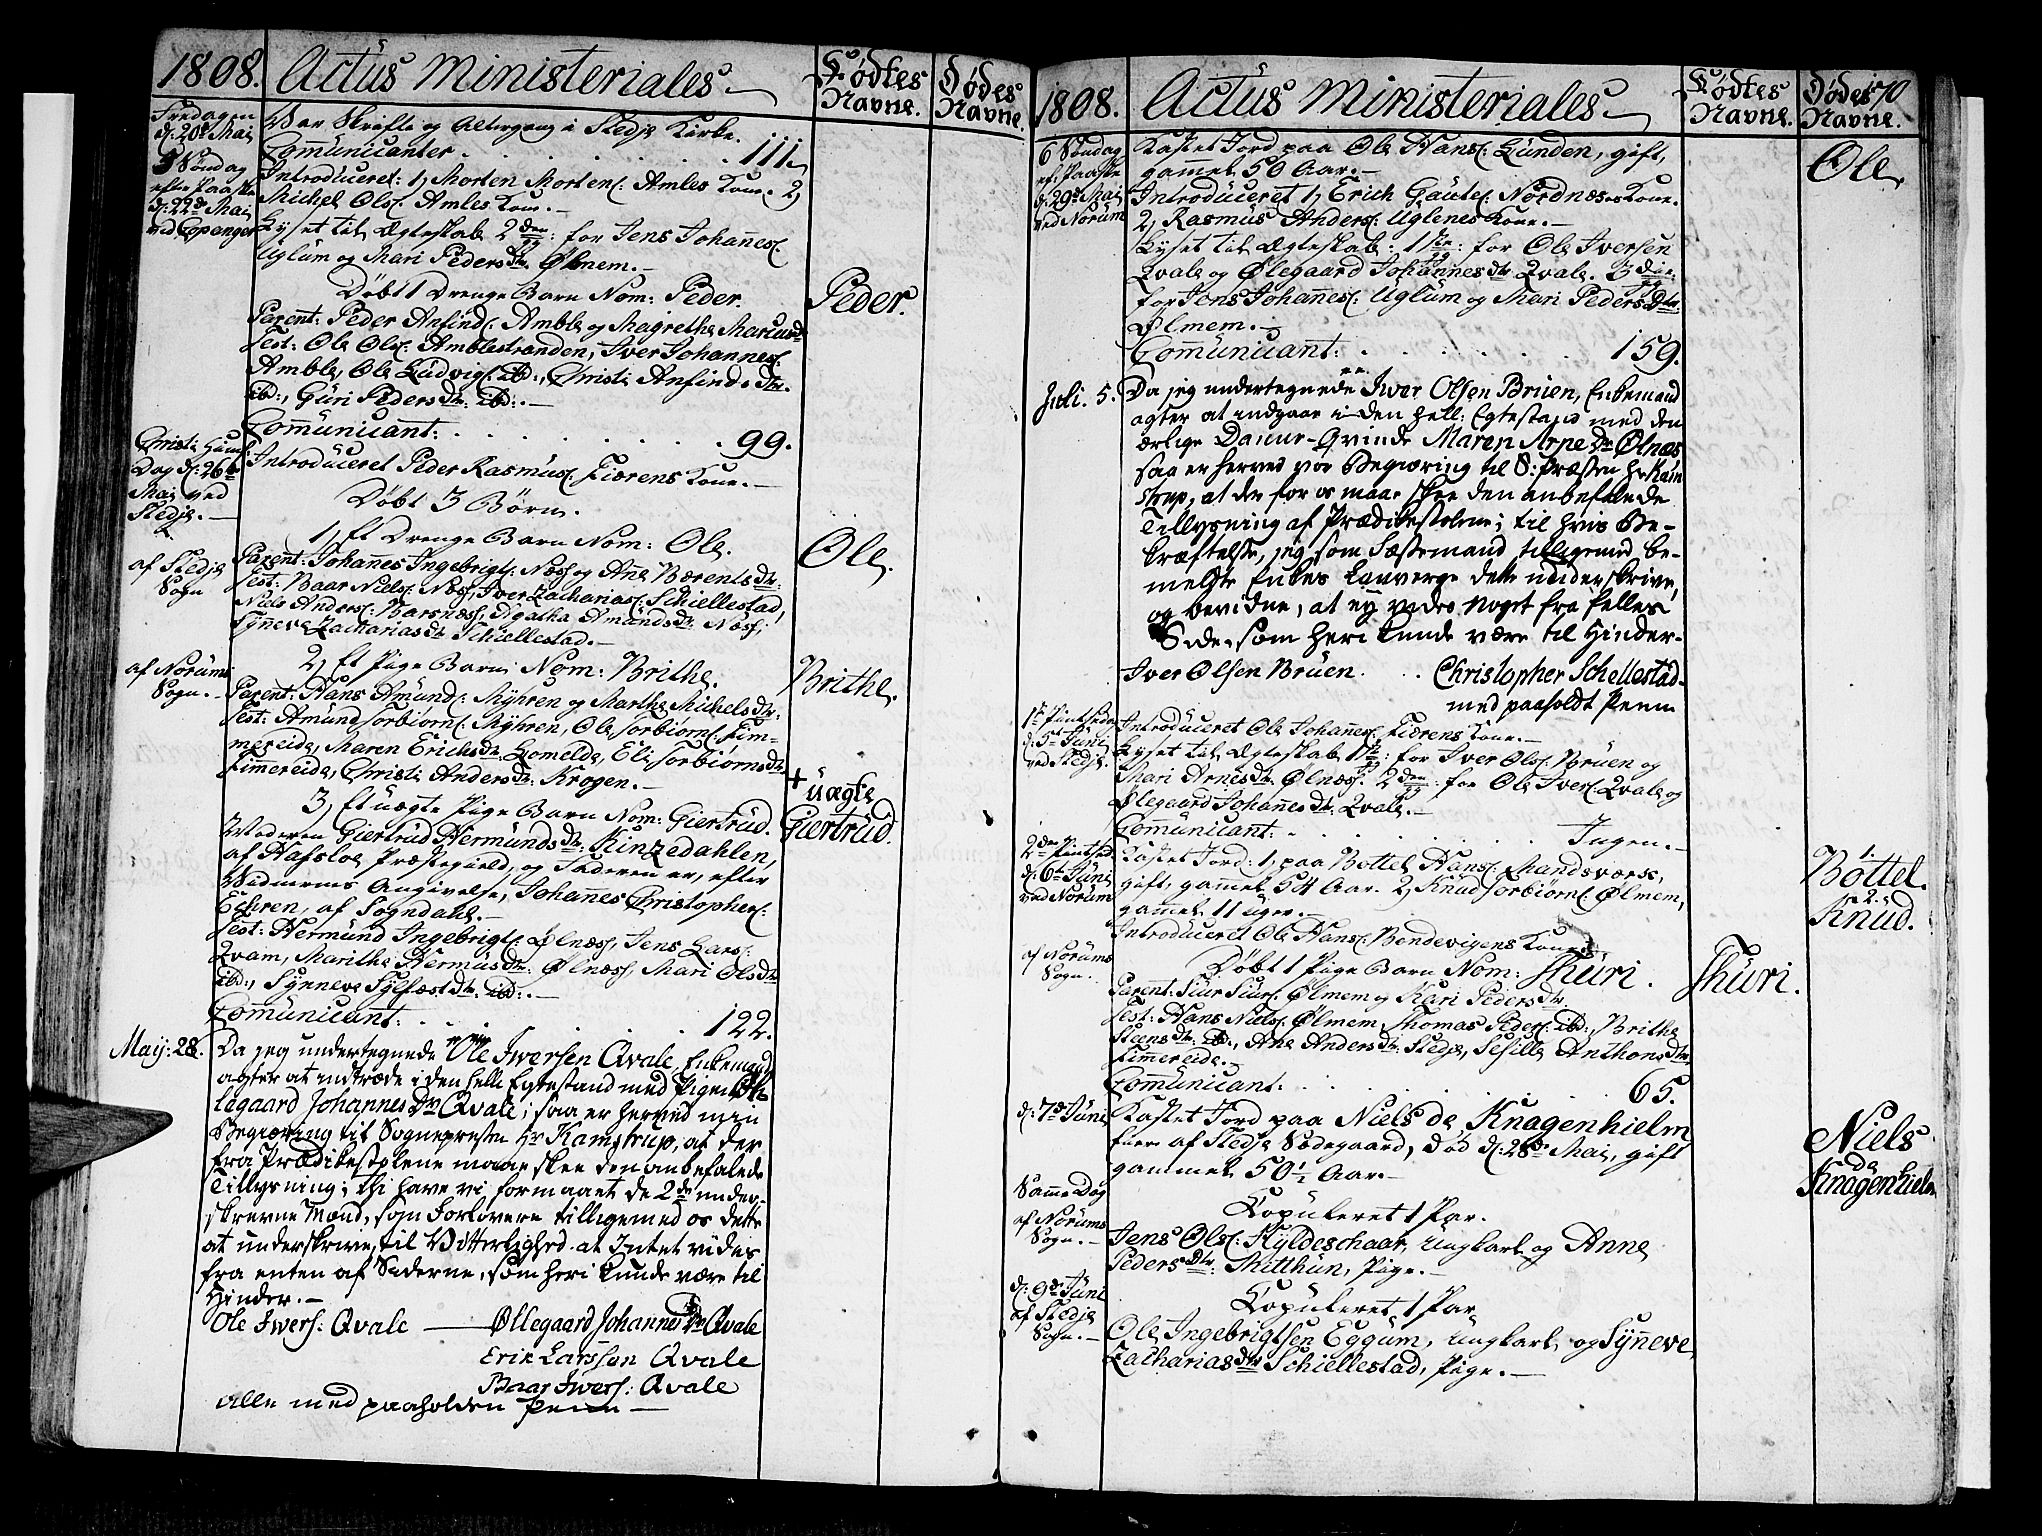 1808. Actus Ministeriales Födtes Navne. Dödes Navne.
Fredagen d: 20de Mai
Var Skrifte og Altergang i Stedje Kirke.
Com̄unicanter . . . 111.
5 Söndag efter Paaske d: 22de Mai ved Copanger
Introduceret: 1, Morten Mortens: Amles Kone. 2,
Michel Ols: Amles Kone.
Lyset til Ægteskab 2den gg: for Jens Johannes:
Uglum og Mari Peders Dtr. Ølmem.
Döbt 1 Drenge Barn Nom: Peder.
Peder.
Parent: Peder Anfinds: Amble og Magrethe
Test: Ole Ols: Amblestranden, Iver Johannes:
Amble, Ole Ludvigs: ibd:, Christi Anfinds Dtr.
ibd:, Guri Peders Dtr: ibd:.
Com̄unicant: . . . 99.
Christi Dag d: 26de Mai ved Stedje.
Introduceret Peder Rasmus: Fiærens Kone.
Döbt 3 Börn.
1, Et Drenge Barn Nom: Ole.
Ole.
af Stedje Sogn
Parent: Johannes Ingebrigts: Næss og Ane Bærents Dtr:
Test: Baar Niels: Næss, Iver Zacharias: Schiellestad,
Niels Anders: Barsnæss, Agatha Amunds Dtr: Næss,
Synneve Zacharias Dtr Schiellestad.
2, Et Pige Barn Nom: Brithe.
Brithe.
af Norums Sogn.
Parent: Hans Amunds: Myhren og Marthe Michels Dtr:
Test: Amund Torbiørns: Myhren, Ole Torbiørns: Fim-
mereide, Maren Erichs Dtr Lomelde, Eli Torbiørns Dtr
Fimmereide, Christi Anders Dtr: Krogen.
3, Et uægte Pige Barn Nom: Giertrud.
+ uægte
Giertrud.
Moderen Giertrud Hermunds Dtr: Kinzedahlen,
af Hafsloe Præstegield, og Faderen er, efter
Angivelse, Johannes Christophers:
af Sogndahl.
Test: Hermund Ingebrigts: Ølnæss, Jens Lars:
Qvam, Marithe Dtr: Ølnæss, Mari Ols Dtr
ibd:, Synneve Sylfæst Dtr: ibd:.
Com̄unicant: . . . 122.
Maij: 28.
Da jeg undertegnede Ole Iwersen Qvale, Enkemand
agter at indtræde i den hell: Egtestand med Pigen Øl-
legaard Johannes Dr Qvale; saa er herved min
Begiæring til Sognepresten Hr Kamstrup, at der
fra Prædikestolene maae skee den anbefalede
Tillysning; thi have vi formaaet de 2de under-
skrevne Mænd, som Forlovere tilligemed os dette
at underskrive, til Vitterlighed at Intet vides
fra enten af Siderne, som heri kunde være til
Hinder.
Ole Iwers: Qvale — Øllegaard Johannes Dr Qvale
Erik Larssen Qvale
Baar Iwers: Qvale
alle med paaholden Penn
1808. Actus Ministeriales Födtes Navne. Dödes Navne. 170
6 Söndag ef: Paaske d: 29de Mai ved Norum
Kastet Jord paa Ole Hans: Lunden, gift,
gammel 50 Aar.
Ole.
Introduceret 1, Erich Gautes: Nordnæses Kone.
2, Rasmus Anders: Uglenes Kone.
Lyset til Ægteskab: 1ste gg: for Ole Iversen
Qvale og Ølegaard Johannes Dtr Qvale. 3die gg
for Jens Johannes: Uglum og Mari Peders Dtr
Ølmem.
Com̄unicant: . . . 159.
Juli. 5.
Da jeg undertegnede Iwer Olsen Bruen, Enkemand
agter at indgaae i den hell: Egtestand med den
ærlige Danne-Qvinde Maren Arne Dr Ølnæs
saa er herved vor Begiæring til S: Præsten Hr Kam-
strup, at der for os maae skee den anbefalede
Tillysning af Prædikestolene; til hvis Be-
kræftelse, jeg som Fæstemand, tilligemed be-
meldte Enkes Lauverge dette underskrive,
og bevidne, at ey vides noget fra felles
Side, som heri kunde være til Hinder.
Iver Olsen Bruen . . Christopher Schellestad
med paaholdt Penn
1ste Pintsedag d: 5te Juni ved Stedje.
Introduceret Ole Johannes: Fiærens Kone.
Lyset til Ægteskab 1ste gg: for Iver Ols: Bruen og
Mari Arnes Dtr: Ølnæss. 2den gg: for Ole Ivers: Qvale og
Ølegaard Johannes Dtr: Qvale.
Com̄unicant: . . . Ingen.
2den Pintsed. d: 6te Juni ved Norum
Kastet Jord: 1, paa Bottel Hans:
gift, gammel 54 Aar. 2, Knud Torbiørns: Ølmem,
gammel 11 uger.
1. Bottel.
2. Knud.
Introduceret Ole Hans: Bondevigens Kone.
af Norums Sogn.
Döbt 1 Pige Barn Nom: Thuri.
Thuri.
Parent: Siur Siurs: Ølmem og Kari Peders Dtr.
Test: Hans Niels: Ølmem, Thomas Peders: ibd:, Brithe
Steens Dtr: ibd:, Ane Anders Dtr: Stedje, Sesille Anthons Dtr
Fimmereide.
Com̄unicant: . . . 65.
d: 7de Juni
Kastet Jord paa Niels de Knagenhielm
af Stedje Sædegaard, Död d: 28de Mai, gift
gammel 50 1/2 Aar.
Niels de Knagenhielm
Samme Dag af Norums Sogn.
Kopuleret 1 Par.
Jens Ols: Skyldeschaar, Ungkarl og Anne
Peders Dtr: Mitthun, Pige.
d: 9de Juni af Stedje Sogn.
Kopuleret 1 Par.
Ole Ingebrigtsen Eggum, Ungkarl og Synneve
Zacharias Dtr Schiellestad, Pige.